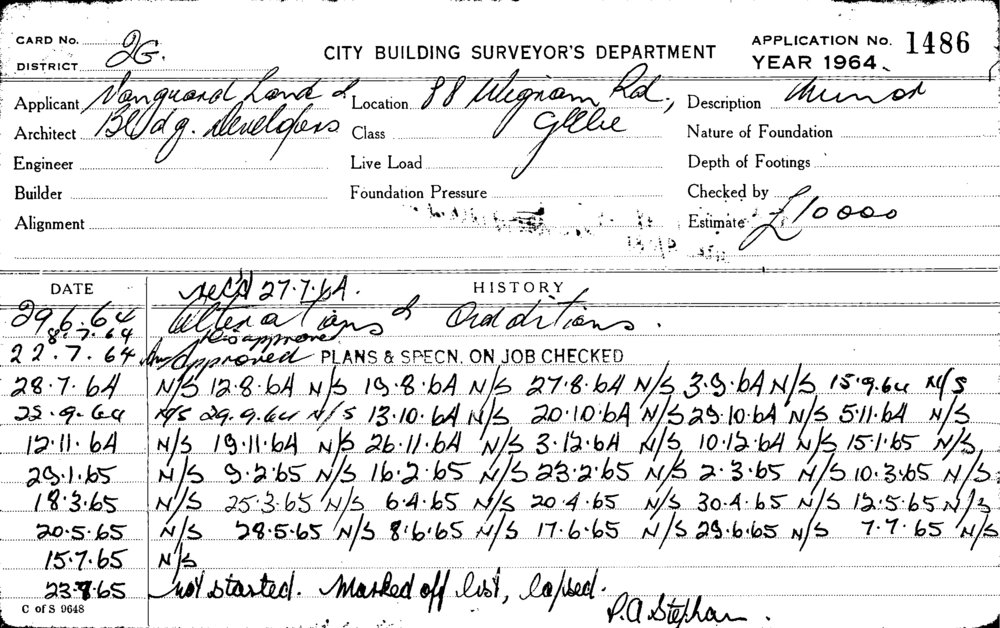 CARD No. 2G. CITY BUILDING SURVEYOR'S DEPARTMENT APPLICATION No. 1486
DISTRICT YEAR 1964
Applicant Vanguard Land & Location 88 Wigram Rd, Description Minor
Architect Bldg. Developers Class Glebe Nature of Foundation
Engineer Live Load Depth of Footings
Builder Foundation Pressure Checked by
Alignment Estimate £10000
DATE rec'd 27.7.64. HISTORY
29.6.64 Alterations & Additions.
8.7.64 Disapproved
22.7.64 Approved PLANS & SPECN. ON JOB CHECKED
28.7.64 N/S 12.8.64 N/S 19.8.64 N/S 27.8.64 N/S 3.9.64 N/S 15.9.64 N/S
22.9.64 N/S 29.9.64 N/S 13.10.64 N/S 20.10.64 N/S 29.10.64 N/S 5.11.64 N/S
12.11.64 N/S 19.11.64 N/S 26.11.64 N/S 3.12.64 N/S 10.12.64 N/S 15.1.65 N/S
29.1.65 N/S 9.2.65 N/S 16.2.65 N/S 23.2.65 N/S 2.3.65 N/S 10.3.65 N/S.
18.3.65 N/S 25.3.65 N/S 6.4.65 N/S 20.4.65 N/S 30.4.65 N/S 12.5.65 N/S
20.5.65 N/S 28.5.65 N/S 8.6.65 N/S 17.6.65 N/S 29.6.65 N/S 7.7.65 N/S
15.7.65 N/S
23.7.65 not started. Marked off list, lapsed.
C of S 9648 P.A Stephan.